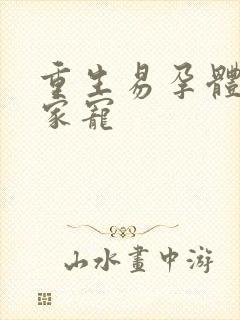 重生易孕體
家寵
山水畫中游